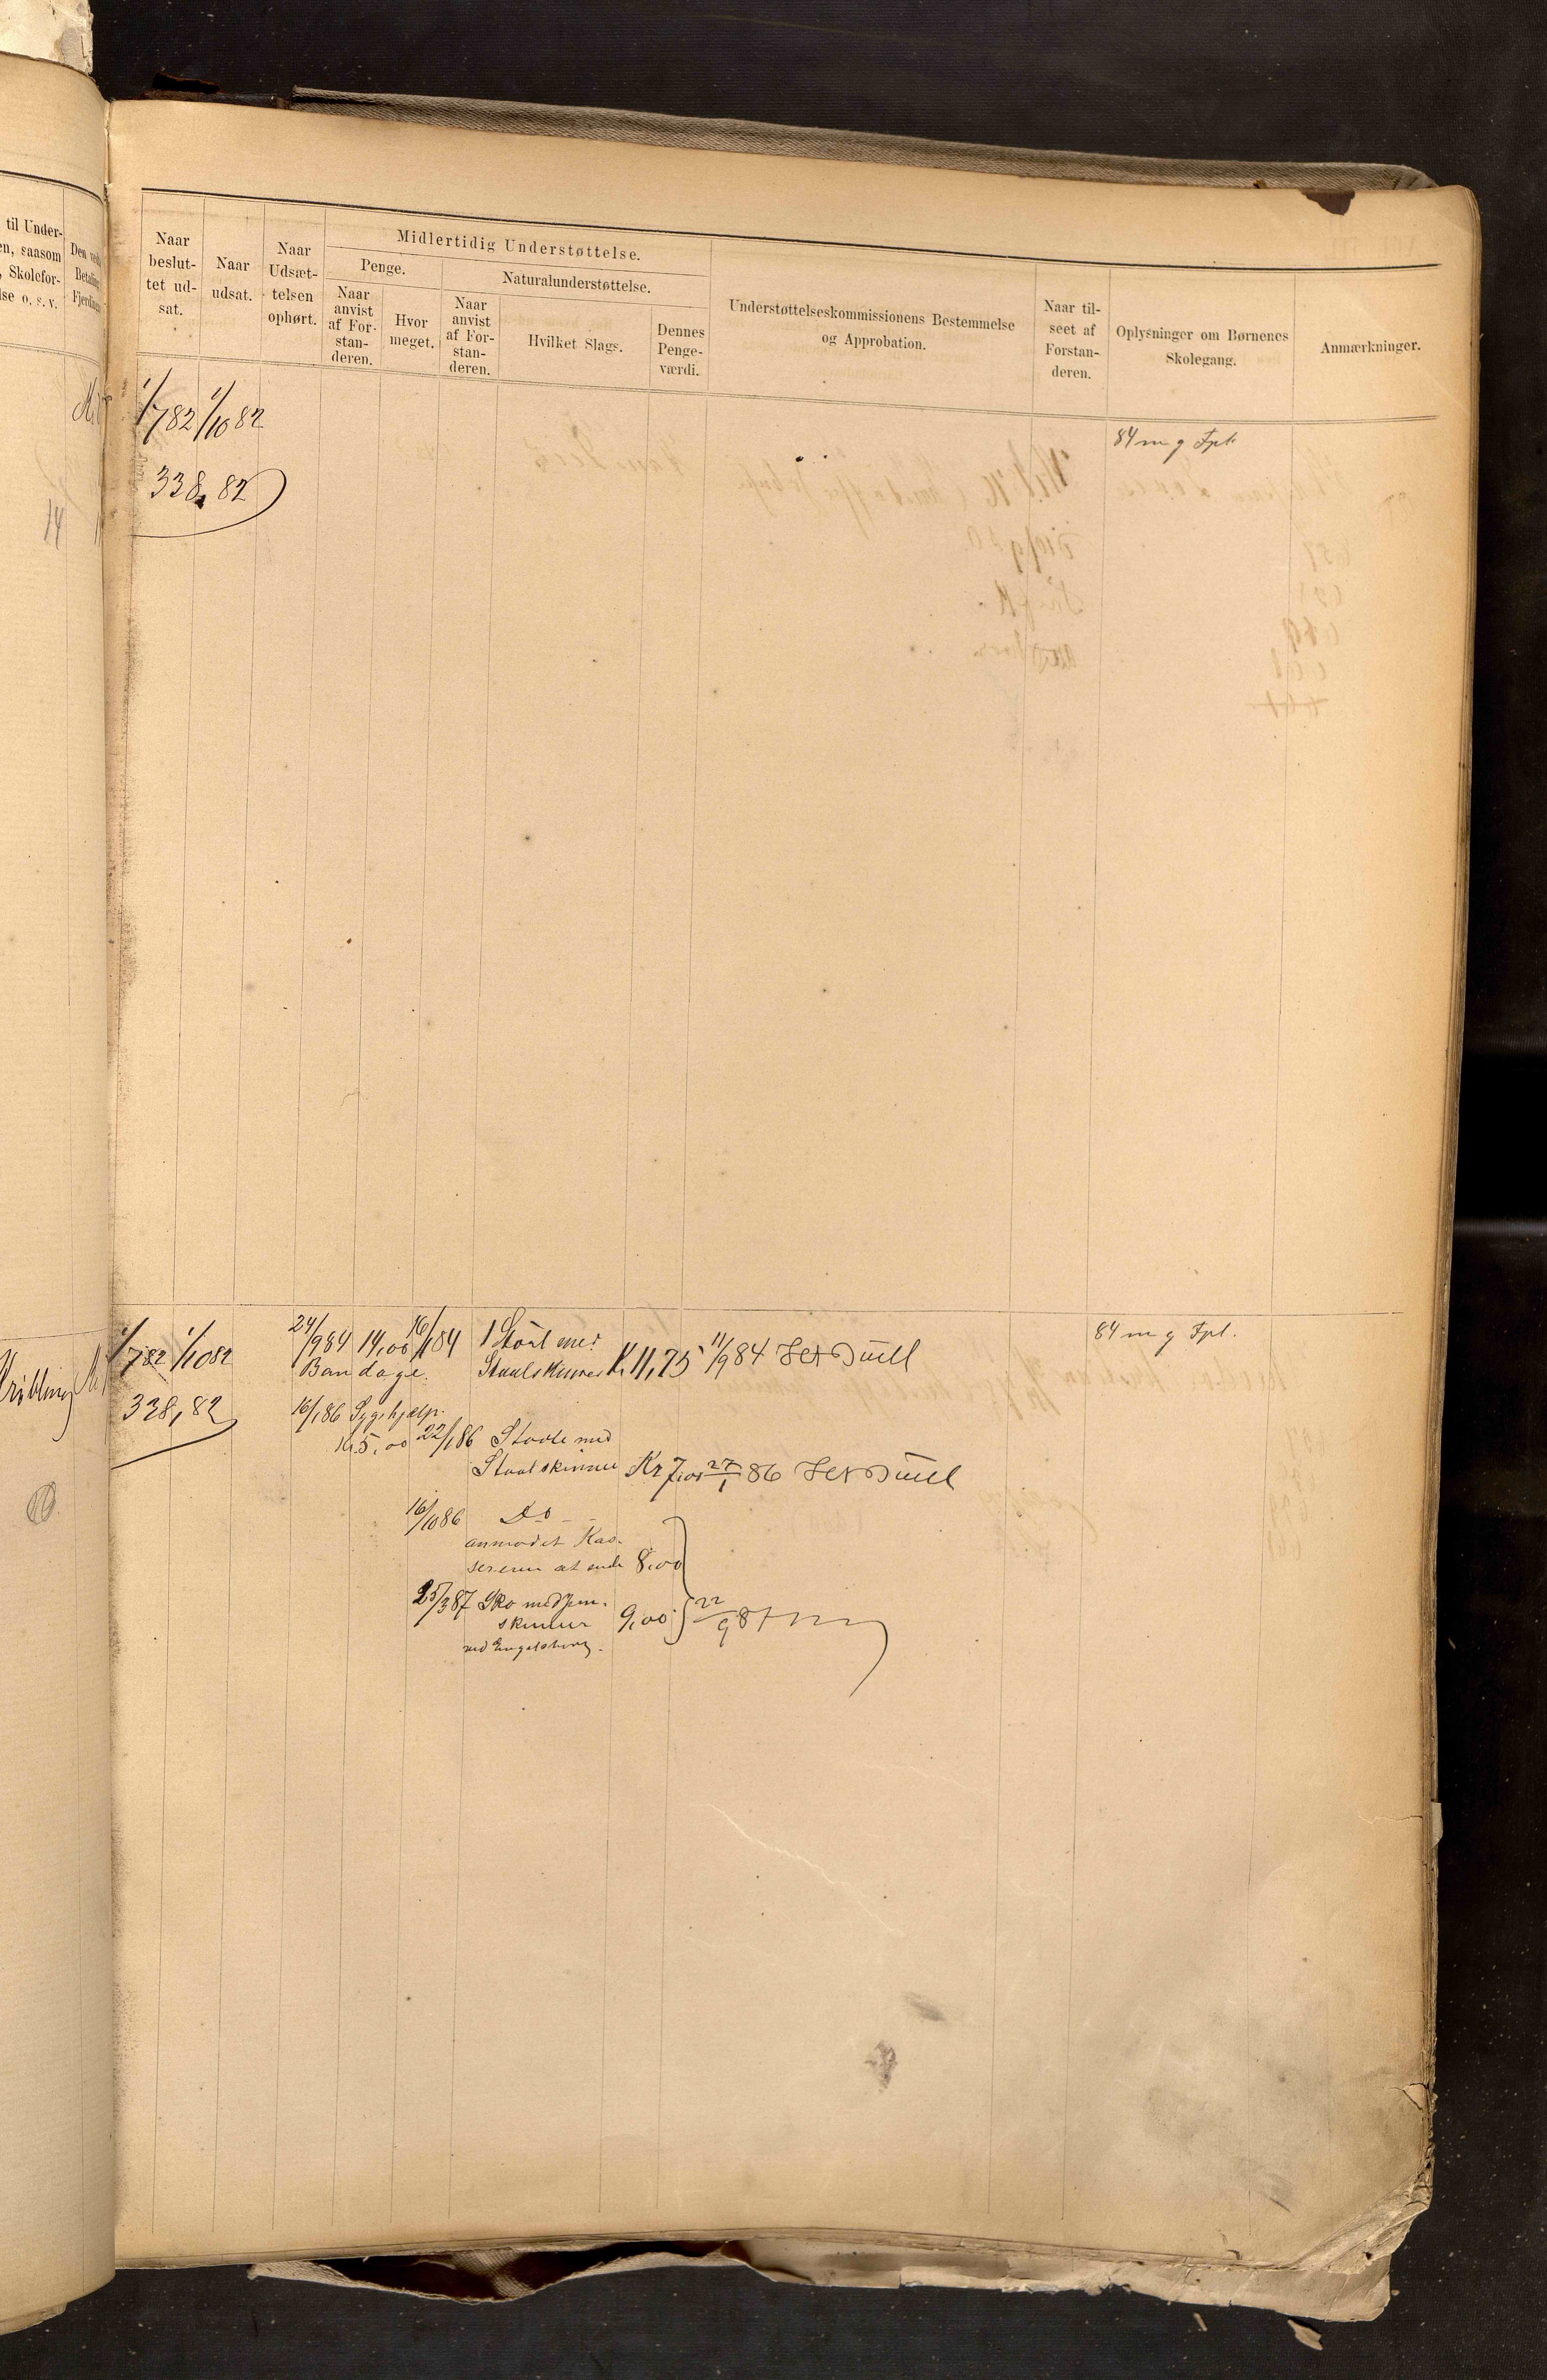 til Under-
en, saasom
, Skolefor-
lse o. s. v.
Den
Betaling
Fjerdings
Naar
beslut-
tet ud-
sat.
Naar
udsat.
Naar
Udsæt-
telsen
ophørt.
Midlertidig Understøttelse.
Penge.
Naar
anvist
af For-
stan-
deren.
Hvor
meget.
Naturalunderstøttelse.
Naar
anvist
af For-
stan-
deren.
Hvilket Slags.
Dennes
Penge-
værdi.
Understøttelseskommissionens Bestemmelse
og Approbation.
Naar til-
seet af
Forstan-
deren.
Oplysninger om Børnenes
Skolegang.
Anmærkninger.
1/7 82 1/10 82
338, 82
84 m g Fpl.
14
1/7 82 1/10 82
338, 82
24/9 84 14,00
Bandage.
16/1 86 Sygehjælp.
Kr 5,00
16/1 84 1 Støvl med
Staalskinner Kr 11,75 11/9 84
22/1 86 Støvle med
Staalskinner Kr 7,00 27/1 86
16/10 86 Do
anmodet Kas-
sereren at sende 8,00
25/3 87 Sko med Jern-
skinner 9,00 22/9 87
84 m g Fpl.